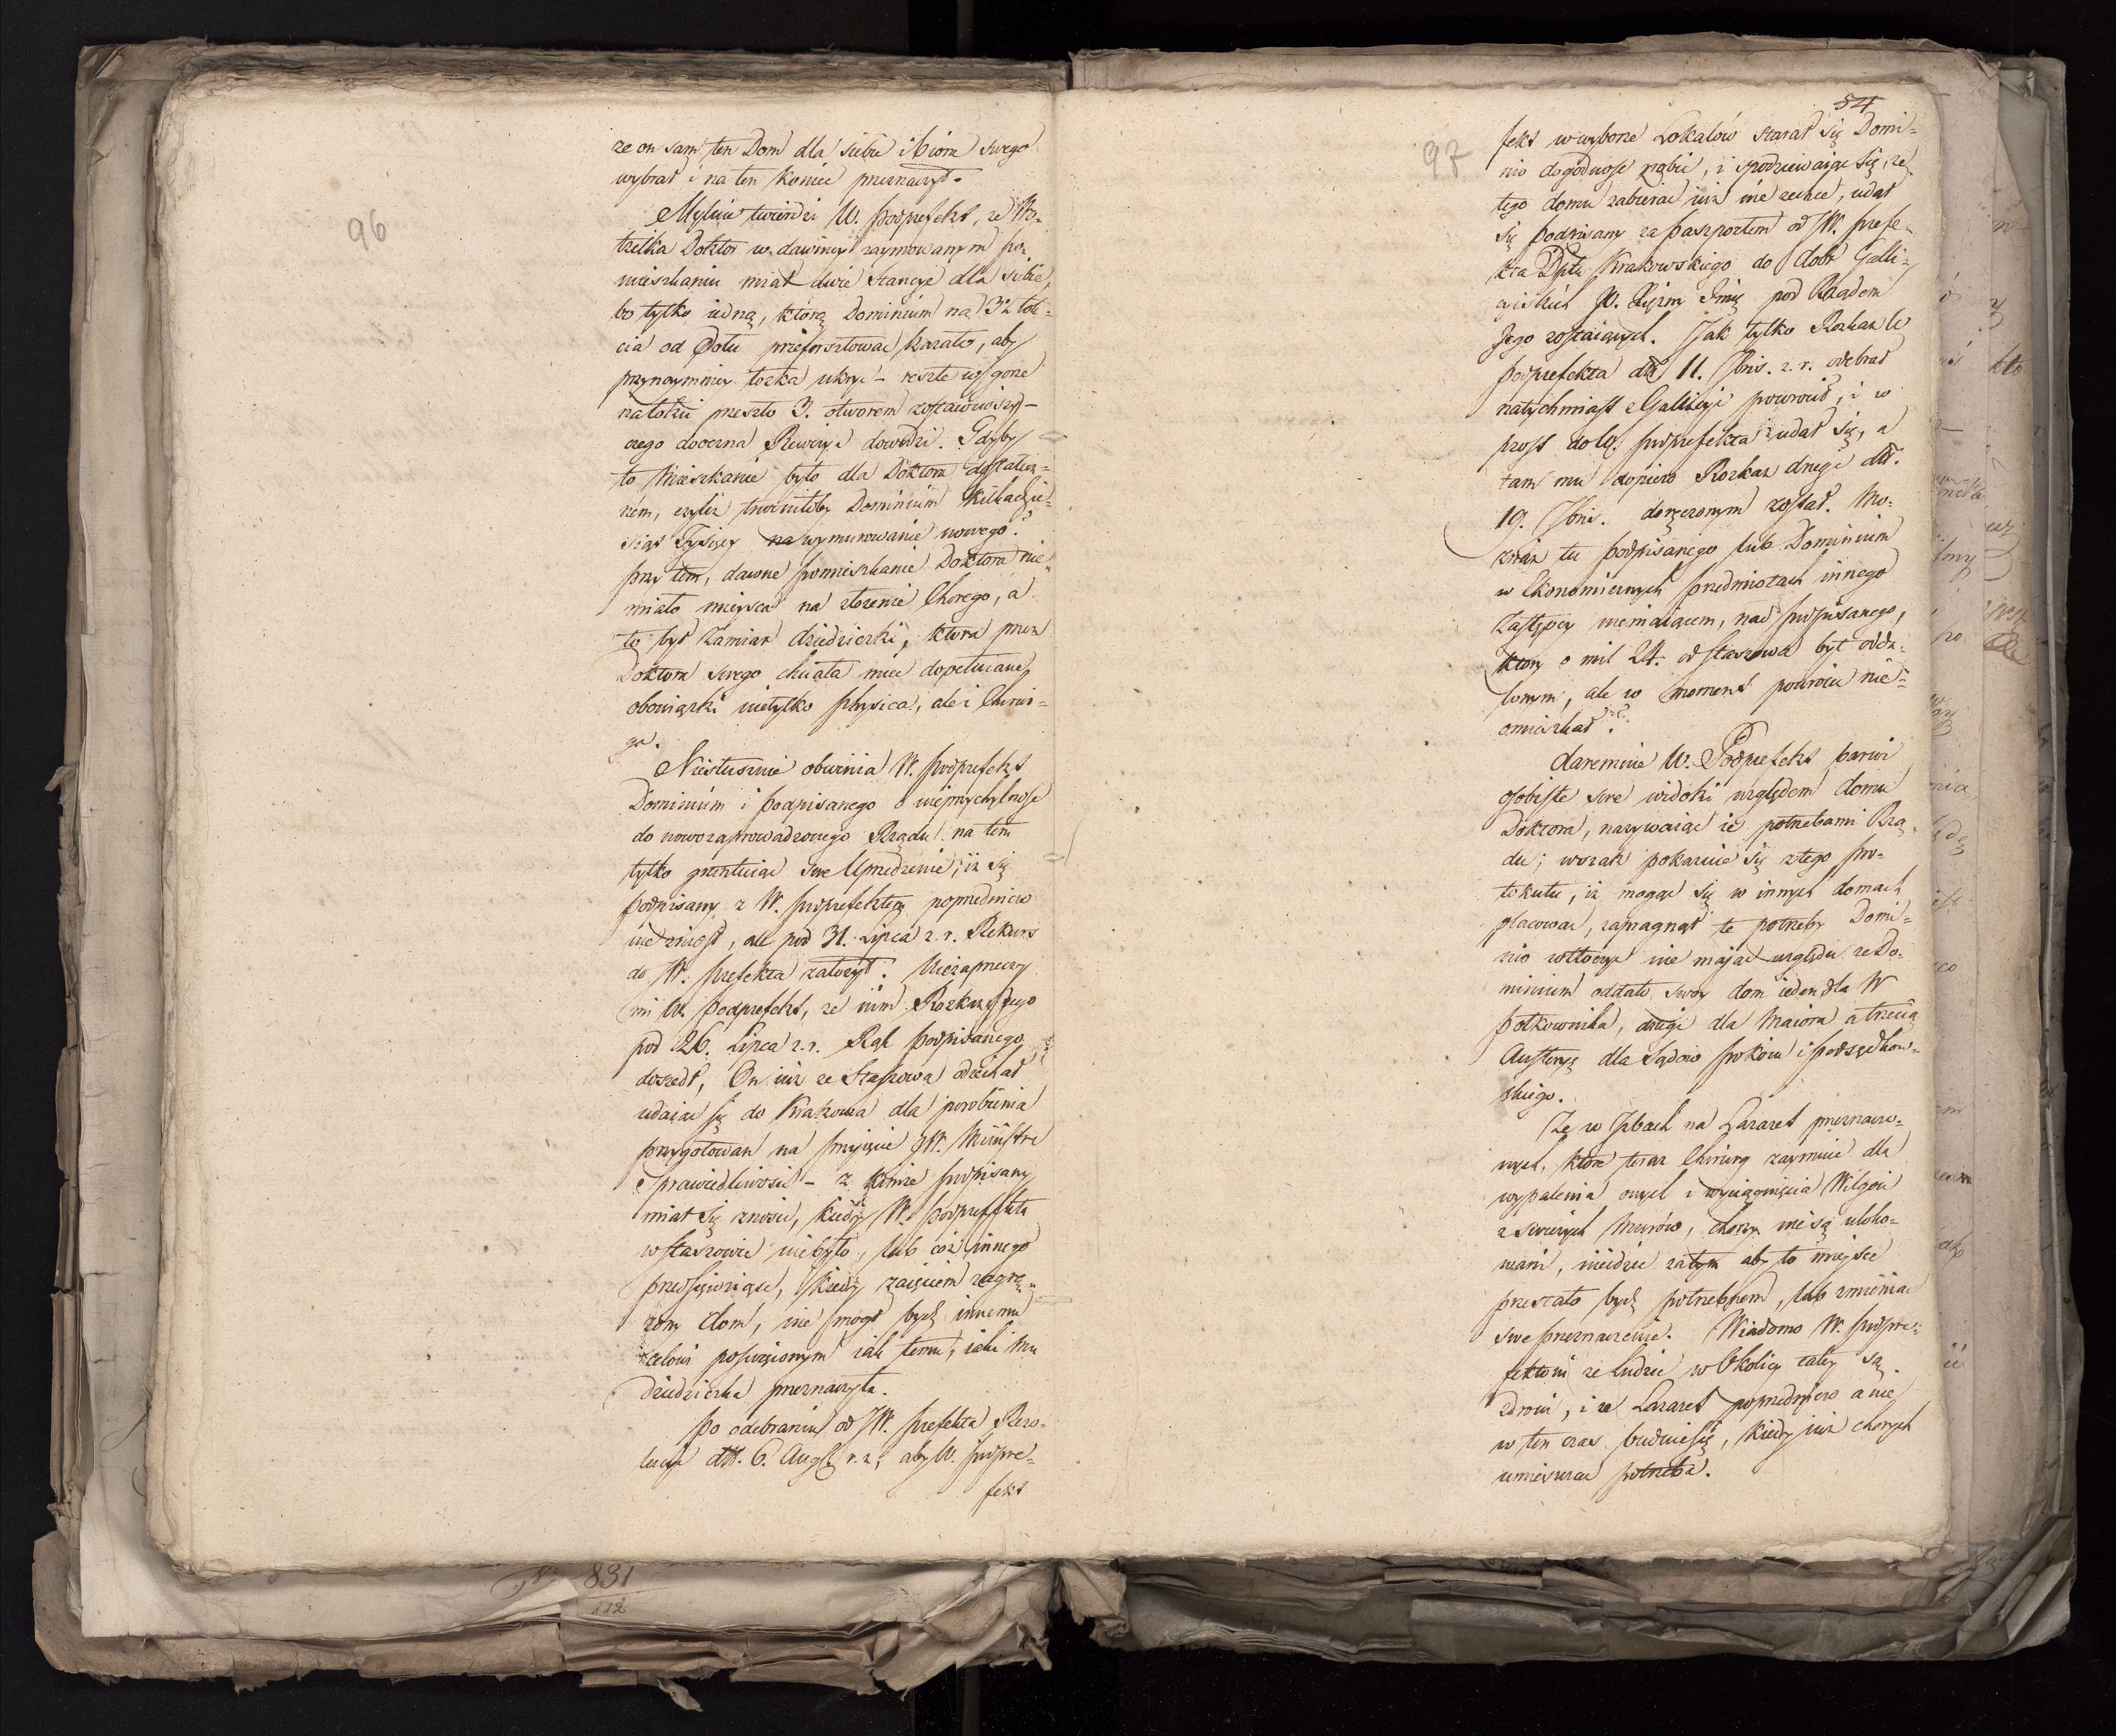 96
że on sam ten Dom dla siebie i Biora swego
wybrał i na ten koniec przeznaczył.
Mylnie twierdzi W. Podprefekt, że
Doktor w dawniey zaymowanym po=
mieszkaniu miał dwie Stancye dla siebie,
bo tylko iedną, którą Dominium na 3½ łok=
cia od Dołu przeforsztować kazało, aby
przynaymniey łożka ukryć – resztę w gorze
na łokci przeszło 3. otworem zostawiwszy –
czego oczna Rewizya dowodzi. Gdyby
to Mieszkanie było dla Doktora dostatecz=
nem, czyliż Dominium kilkadzie=
siąt Tysięcy na wymurowanie nowego?
przy tem, dawne pomieszkanie Doktora nie=
miało mieysca na złożenie Chorego, a
to był zamiar dziedziczki, ktora przez
Doktora swego chciała miec dopełniane
obowiązki nietylko physica, ale i Chirur=
ga.
Niesłusznie obwinia W. Podprefekt
Dominium i podpisanego o nieprzychylność
do nowozaprowadzonego Rządu na tem
tylko gruntuiąc swe Uprzedzenie, iż się
podpisany z W. Podprefektem poprzedniczo
nie zniosł, ale pod 31. Lipca r. r. Rekurs
do JW. Prefekta założył. Niezaprzeczy
mi W. Podprefekt, że nim Rozkaz Jego
pod 26. Lipca r. r. Rąk podpisanego
doszedł, On iuż ze Staszowa odiechał
udaiąc się do Krakowa dla porobienia
przygotowań na przyięcie JW. Ministra
Sprawiedliwości – z kimże podpisany
miał się znosić, kiedy W. Podprefekta
w Staszowie niebyło, lub coż innego
przedsięwziąść, kiedy zaięciem zagro=
zony dom, nie mogł bydź innemu
celowi poswięconym iak temu, iaki mu
dziedziczka przeznaczyła.
Po odebraniu od JW. Prefekta Rezo=
lucyi dtt. 6. Augl. r. r., aby W. Podpre=
fekt
54
97
fekt w wyborze Lokalów starał się Domi=
nio dogodność robić, i spodziewaiąc się, że
tego domu zabierać iuż nie zechce, udał
się podpisany za paszportem od JW. Prefe=
kta Dptu Krakowskiego do dobr Galli=
cyiskich JO. Xiężny Jmię pod Rządem
Jego zostaiących. Jak tylko Rozkaz W.
Podprefekta dtt 11. 7bris. r. r. odebrał
natychmiast z Gallicyi powrocił, i w
prost do W. Podprefekta udał się, a
tam mu dopiero Rozkaz drugi dtt.
19. 7bris. doręczonym został. Mo=
znaż tu podpisanego lub Dominium
w Ekonomicznych przedmiotach innego
Zastępcy niemaiącem, nad podpisanego,
ktory o mil 24. od Staszowa był odda=
lonym, ale w moment powrócić nie=
omieszkał?
Daremnie W. Podprefekt barwi
osobiste swe widoki względem domu
Doktora, nazywaiąc ie potrzebami Rzą=
du; wszak pokazuie się z tego Pro=
tokułu, iż mogąc się w innych domach
placować, zapragnął te potrzeby Domi=
nio wtłoczyć nie maiąc względu że Do=
minium oddało swoy dom ieden dla W
Połkownika, drugi dla Maiora a trzecią
Austeryą dla Sądow Pokoiu i Podsędkow=
skiego.
Że w Izbach na Lazaret przeznaczo=
nych, które teraz Chirurg zaymuie dla
wypalenia onych i wyciągnięcia Wilgoci
z swieżych Murów, chorzy nie są uloko=
wani, nieidzie zatym aby to mieysce
przestało bydź potrzebnem, lub zmieniać
swe przeznaczenie. Wiadomo W. Podpre=
fektowi że Ludzie w Okolicy całey są
zdrowi, i że Lazaret poprzedniczo a nie
w ten czas buduie się, kiedy iuż chorych
umieszczać potrzeba.
831
112